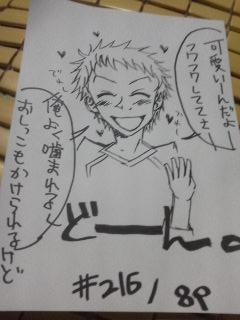 可愛いーんだよ
フワフワしててさ、
でれっ
俺よく噛まれるし
おしっこもかけられるけど
どーーん。
#216/8P